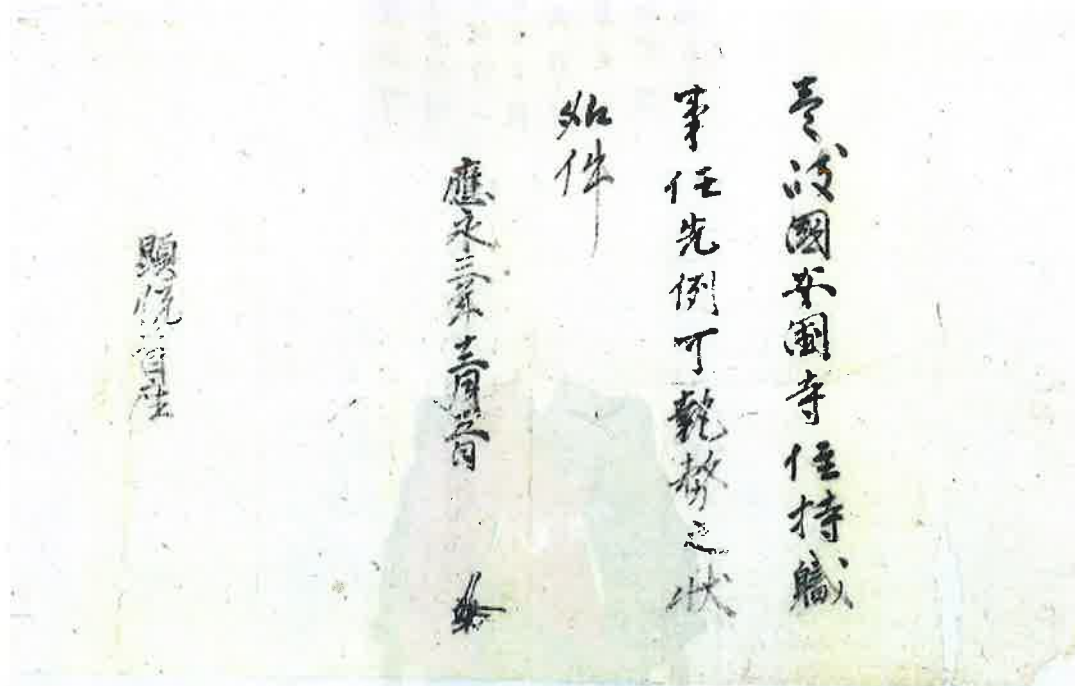 壱岐國安國寺住持職
事任先例可執務之状
如件
應永三年十二月廿五日
顕悦首座